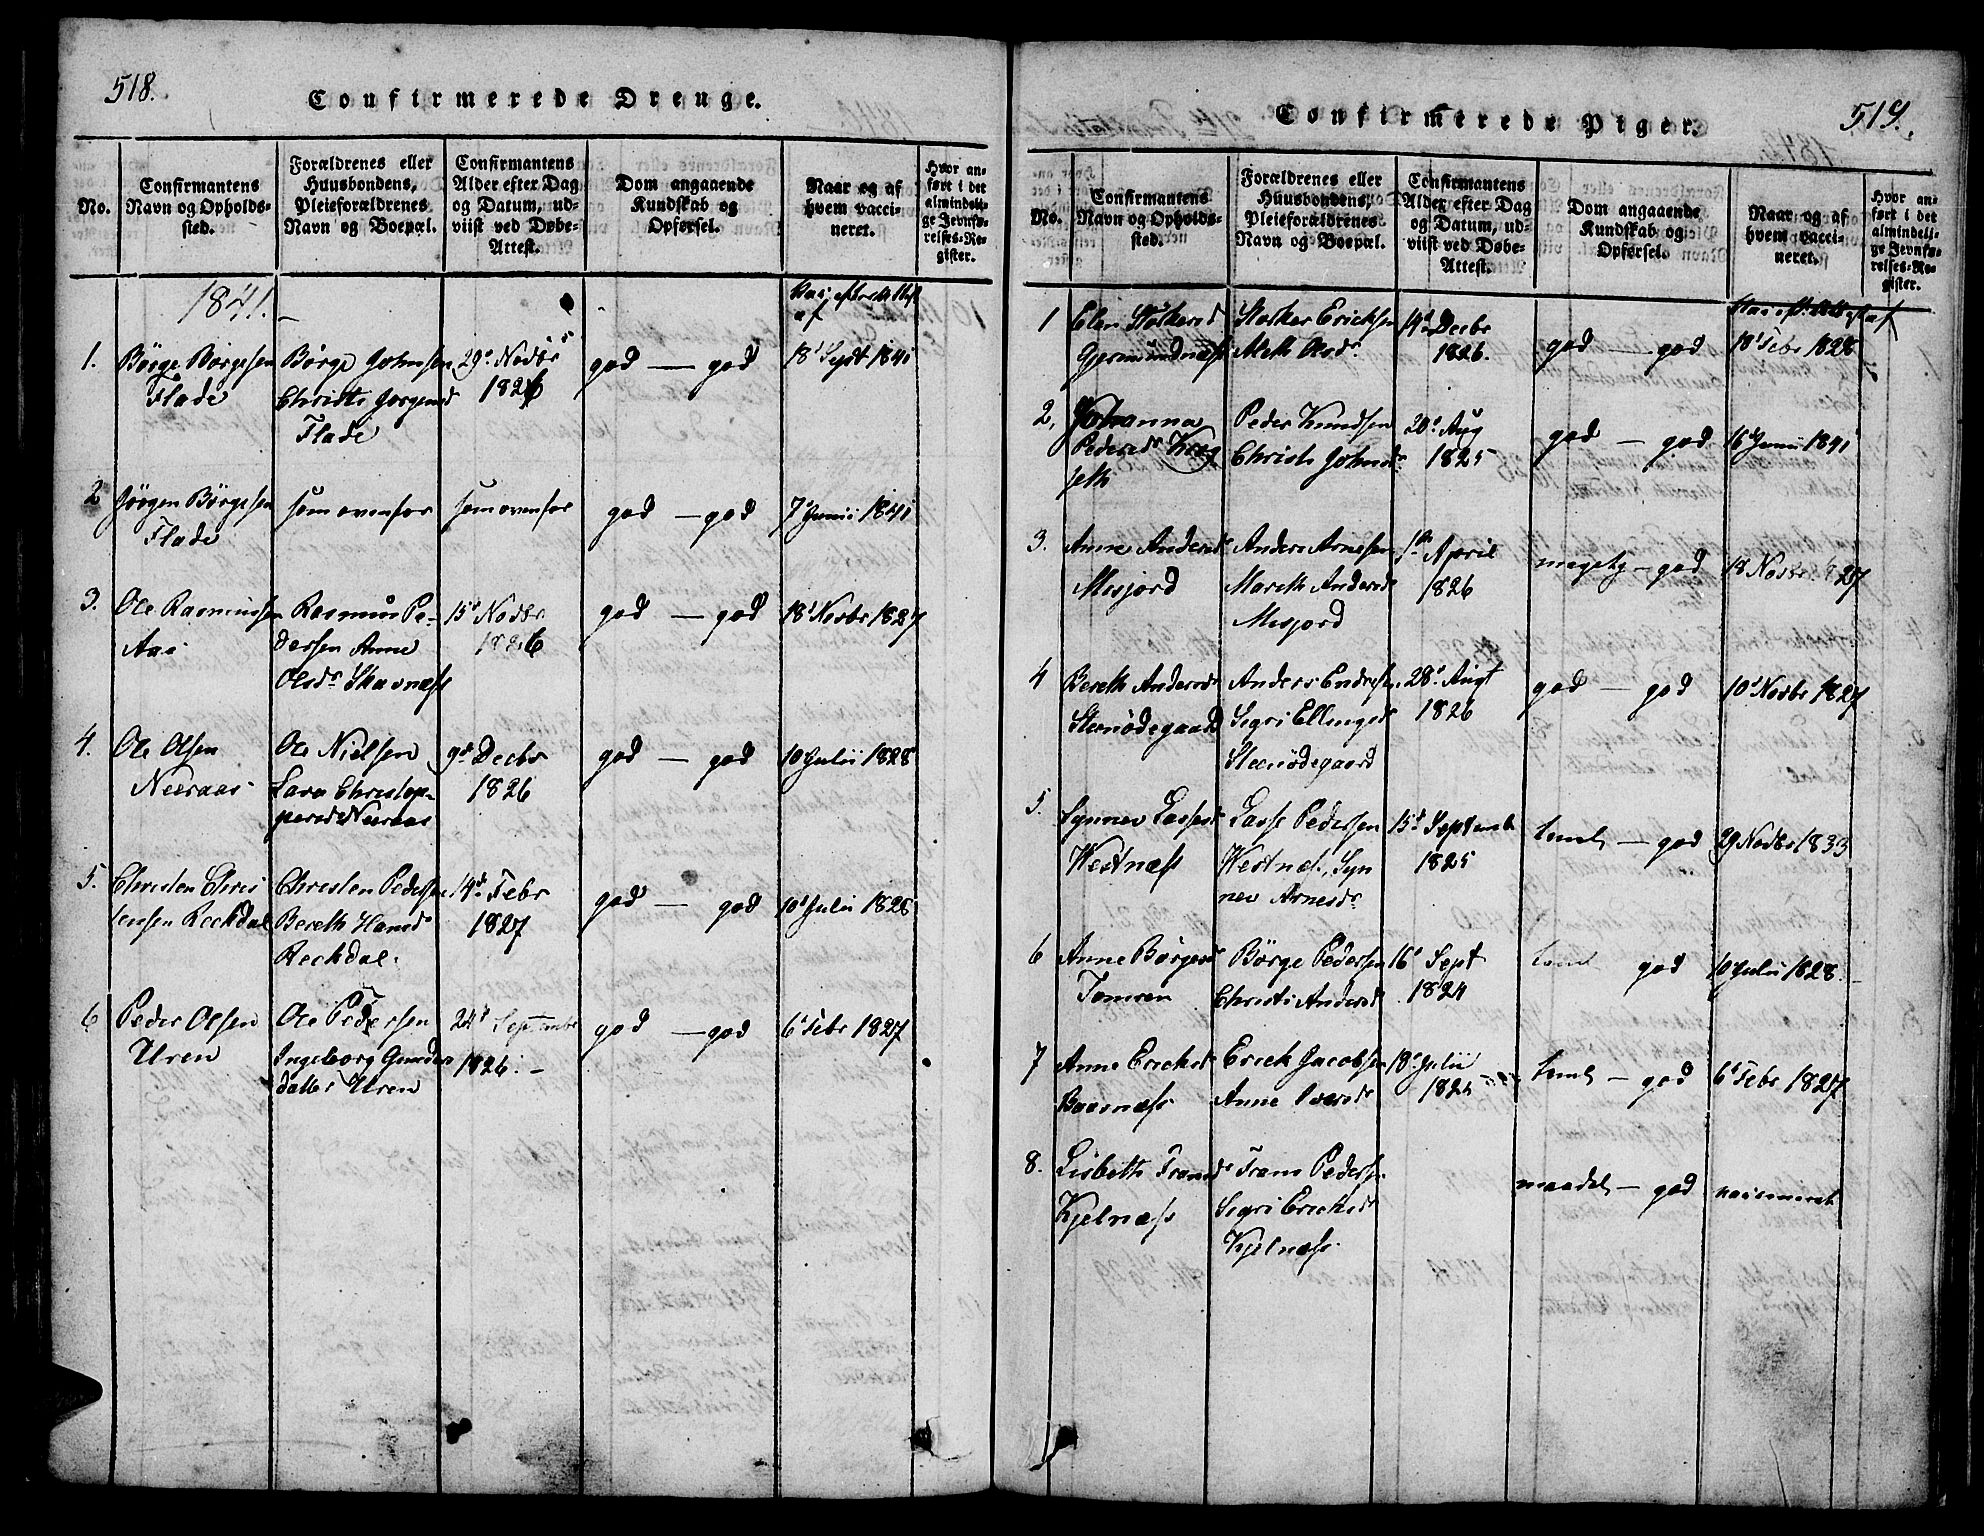 518.
Confirmerede Drenge.
No.
Confirmantens
Navn og Opholds-
sted.
Forældrenes eller
Huusbondens,
Pleieforældrenes
Navn og Boepæl.
Confirmantens
Alder efter Dag
og Datum, ud-
viist ved Døbe-
Attest.
Dom angaaende
Kundskab og
Opførsel.
Naar og af
hvem vacci-
neret.
Hvor an-
ført i det
almindeli-
ge Jevnfø-
relses-Re-
gister.
1841.
1.
Børge Børgesen
Flade
Børge Johnsen
Christi Jørgensd
Flade
29d Novbr
1826
god — god
18d Sept 1841
2
Jørgen Børgesen
Flade
som ovenfor
som ovenfor
god — god
7d Junii 1841
3.
Ole Rasmussen
Aas
Rasmus Pe-
dersen Anne
Olsdr Skavnæss
15d Novbr
1826
god — god
18d Novbr 1827
4.
Ole Olsen
Neeraas
Ole Nielsen
Lava Christop-
persd Neeraas
9d Decbr
1826
god — god
10 Julii 1828
5.
Christen Chris
tensen Reekdal
Christen Pedersen
Bereth Hansd
Reekdal.
14d Febr
1827
god — god
10d Julii 1828
6
Peder Olsen
Uren
Ole Pedersen
Ingeborg Gunders
datter Uren
24d Septembr
1826. —
god — god
6d Febr 1827
519.
Confirmerede Piger.
No.
Confirmantens
Navn og Opholds-
sted.
Forældrenes eller
Huusbondens,
Pleieforældrenes
Navn og Boepæl.
Confirmantens
Alder efter Dag
og Datum, ud-
viist ved Døbe-
Attest.
Dom angaaende
Kundskab og
Opførsel.
Naar og af
hvem vacci-
neret.
Hvor an-
ført i det
almindeli-
ge Jevnfø-
relses-Re-
gister.
1
Elen Størkersd
Gjermundnæss
Størker Ericksen
Meth Olsdr
14d Decbr
1826.
god — god
10d Febr 1828
2,
Johanna
Pedersdr Krog
seth
Peder Knudsen
Christi Johnsdr
20d Aug
1825
god — god
16d Junii 1841
3.
Anne Andersd
Misjord
Anders Arnesen
Mareth Andersd
Misjord
1d April
1826
god
18 Novbr 1827
4
Bereth Andersd
Steenødegaard
Anders Endresen
Segri Ellingsd
Steenødegaard
28d Augt
1826
god — god
10d Novbr 1827
5.
Synnev Lassesd
Westnæss
Lasse Pedersen
Westnæs, Syn
nev Arnesdr
15d Septemb
1825
teml — god
29 Novbr 1833
6
Anne Børgesd
Tomren
Børge Pedersen
Christi Andersd
16d Sept
1824
teml god
10 Julii 1828. —
7
Anne Ericksd
Baasnæss
Erick Jacobsen
Anne Iversd
18d Julii
1825
teml — god
6d Febr 1827
8.
Lisbeth Fransd
Kjelnæss
Frans Pedersen
Segri Ericksd
Kjelnæss.
maadel — god